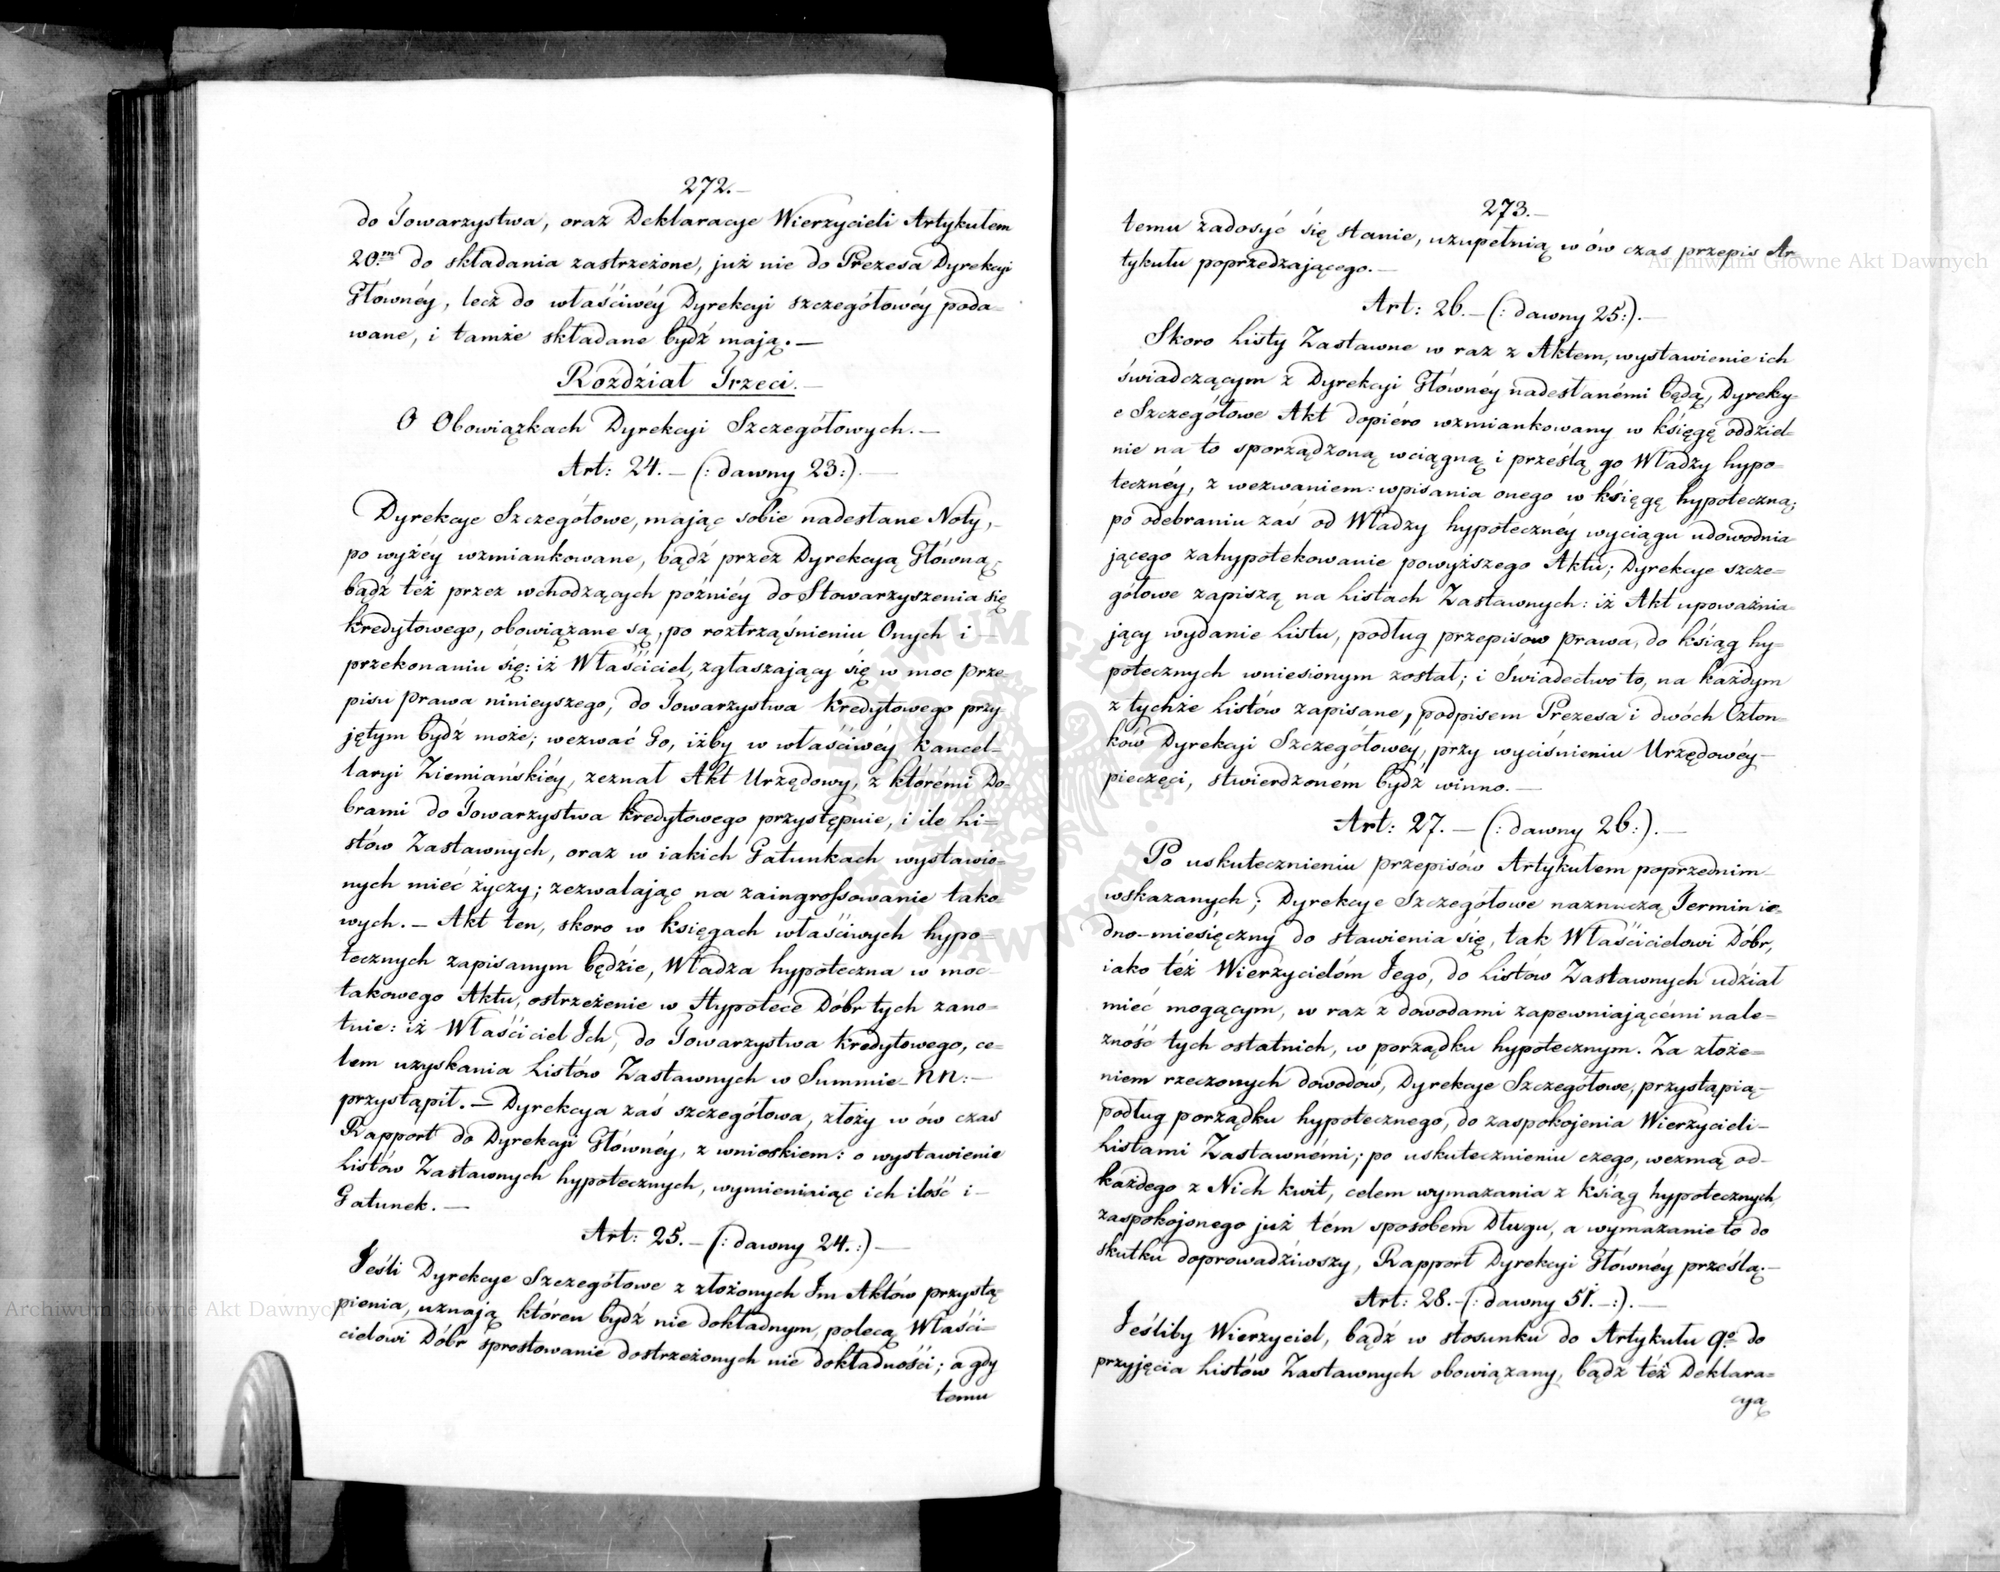 272.—
do Towarzystwa, oraz Deklaracye Wierzycieli Artykułem
20.m do składania zastrzeżone, już nie do Prezesa Dyrekcyi
Główney, lecz do właściwéy Dyrekcyi szczegółowéy poda=
wane, i tamże składane bydź mają. —
Rozdział Trzeci. —
O Obowiązkach Dyrekcyi Szczegółowych. —
Art: 24. — (: dawny 23:). —
Dyrekcye Szczegółowe, mając sobie nadesłane Noty, —
po wyżéy wzmiankowane, bądź przez Dyrekcyą Główną,
bądź téż przez wchodzących poźniéy do Stowarzyszenia się
kredytowego, obowiązane są, po roztrząśnieniu Onych i —
przekonaniu się: iż Właściciel, zgłaszający się w moc prze=
pisu prawa ninieyszego, do Towarzystwa kredytowego przy
jętym bydź może; wezwać Go, iżby w właściwéy Kancel=
laryi Ziemiańskiéy, zeznał Akt Urzędowy, z którémi Do=
brami do Towarzystwa kredytowego przystępuie, i ile Li=
stów Zastawnych, oraz w iakich Gatunkach wystawio=
nych mieć życzy; zezwalając na zaingrossowanie tako=
wych. — Akt ten, skoro w księgach właściwych hypo=
tecznych zapisanym będzie, Władza hypoteczna w moc
takowego Aktu, ostrzeżenie w Hypotece Dóbr tych zano=
tuie: iż Właściciel Ich, do Towarzystwa kredytowego, ce=
lem uzyskania Listów Zastawnych w Summie — NN: —
przystąpił. — Dyrekcya zaś szczegółowa, złoży w ów czas
Rapport do Dyrekcyi Główney, z wnioskiem: o wystawienie
Listów Zastawnych hypotecznych, wymieniaiąc ich ilość i —
Gatunek. —
Art: 25. — (: dawny 24.:) —
Jeśli Dyrekcye Szczegółowe z złożonych Im Aktów przystą=
pienia, uznają któren bydź nie dokładnym, polecą Właści=
cielowi Dóbr sprostowanie dostrzeżonych nie dokładności; a gdy
temu
273. —
temu zadosyć się stanie, uzupełnią w ów czas przepis Ar=
tykułu poprzedzającego. —
Art: 26. — (: dawny 25:). —
Skoro Listy Zastawne w raz z Aktem, wystawienie ich
świadczącym z Dyrekcyi Główney nadesłanémi będą, Dyrekcy=
e Szczegółowe Akt dopiéro wzmiankowany w księgę oddziel=
nie na to sporządzoną wciągną i prześlą go Władzy hypo=
teczney, z wezwaniem: wpisania onego w księgę hypoteczną;
po odebraniu zaś od Władzy hypotecznéy wyciągu udowodnia
jącego zahypotekowanie powyższego Aktu; Dyrekcye szcze=
gółowe zapiszą na Listach Zastawnych: iż Akt upoważnia=
jący wydanie Listu, podług przepisów prawa, do ksiąg hy=
potecznych wniesionym został; i Świadectwo to, na każdym
z tychże Listów zapisane, podpisem Prezesa i dwóch Człon=
ków Dyrekcyi Szczegółowéy, przy wyciśnieniu Urzędowéy —
pieczęci, stwierdzoném bydź winno. —
Art: 27. — (: dawny 26:). —
Po uskutecznieniu przepisów Artykułem poprzednim
wskazanych; Dyrekcye Szczegółowe naznaczą Termin ie=
dno-miesięczny do stawienia się, tak Właścicielowi Dóbr,
iako téż Wierzycielóm Jego, do Listów Zastawnych udział
mieć mogącym, w raz z dowodami zapewniającémi nale=
żność tych ostatnich, w porządku hypotecznym. Za złoże=
niem rzeczonych dowodów, Dyrekcye Szczegółowe, przystąpią —
podług porządku hypotecznego, do zaspokojenia Wierzycieli —
Listami Zastawnémi; po uskutecznieniu czego, wezmą od —
każdego z Nich kwit, celem wymazania z ksiąg hypotecznych
zaspokojonego już tém sposobem Długu, a wymazanie to do
skutku doprowadziwszy, Rapport Dyrekcyi Główney prześlą; —
Art: 28. — (: dawny 51. —:). —
Jeśliby Wierzyciel, bądź w stosunku do Artykułu 9.o do
przyjęcia Listów Zastawnych obowiązany, bądź téż Deklara=
cyą
Archiwum Główne Akt Dawnych
Archiwum Główne Akt Dawnych